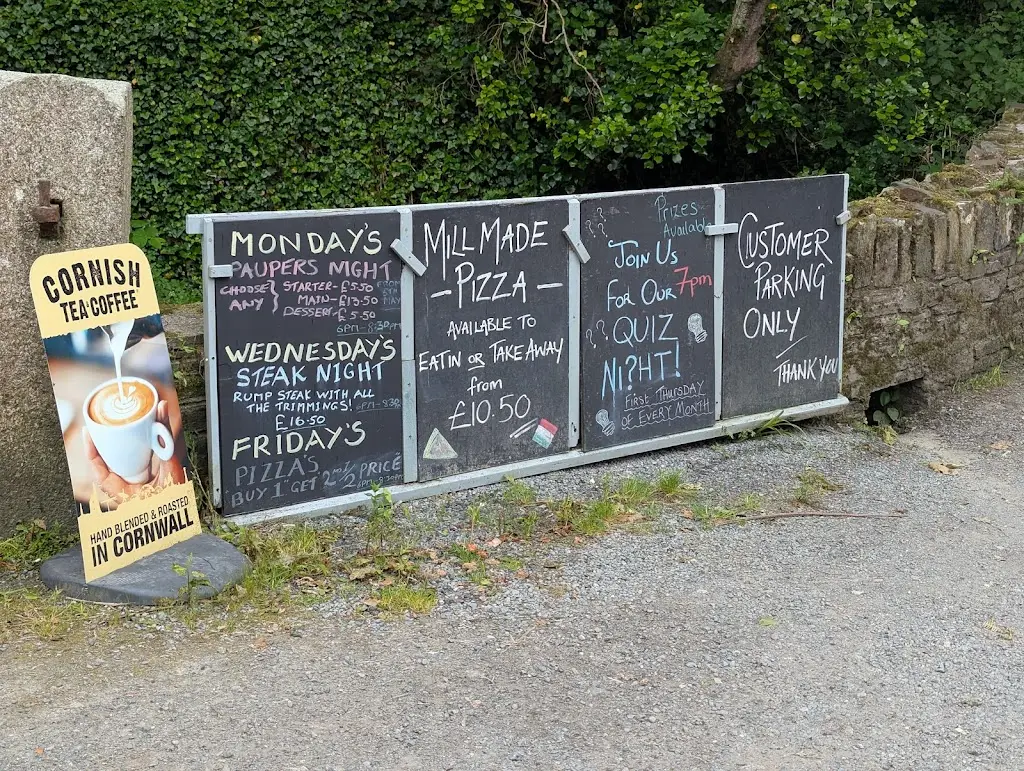 CORNISH
TEA & COFFEE
HAND BLENDED & ROASTED
IN CORNWALL
MONDAY'S
PAUPERS NIGHT
CHOOSE STARTER - £5.50
ANY MAIN - £13.50
DESSERT - £5.50
6PM - 8:30PM
WEDNESDAY'S
STEAK NIGHT
RUMP STEAK WITH ALL
THE TRIMMINGS!
£16.50
FRIDAY'S
PIZZA'S
BUY 1ST GET 2ND 1/2 PRICE
MILL MADE
- PIZZA -
AVAILABLE TO
EATIN OR TAKE AWAY
from
£10.50
Prizes
Available
Join Us
FOR OUR 7pm
QUIZ
NI?HT!
FIRST THURSDAY
OF EVERY MONTH
CUSTOMER
PARKING
ONLY
THANK YOU